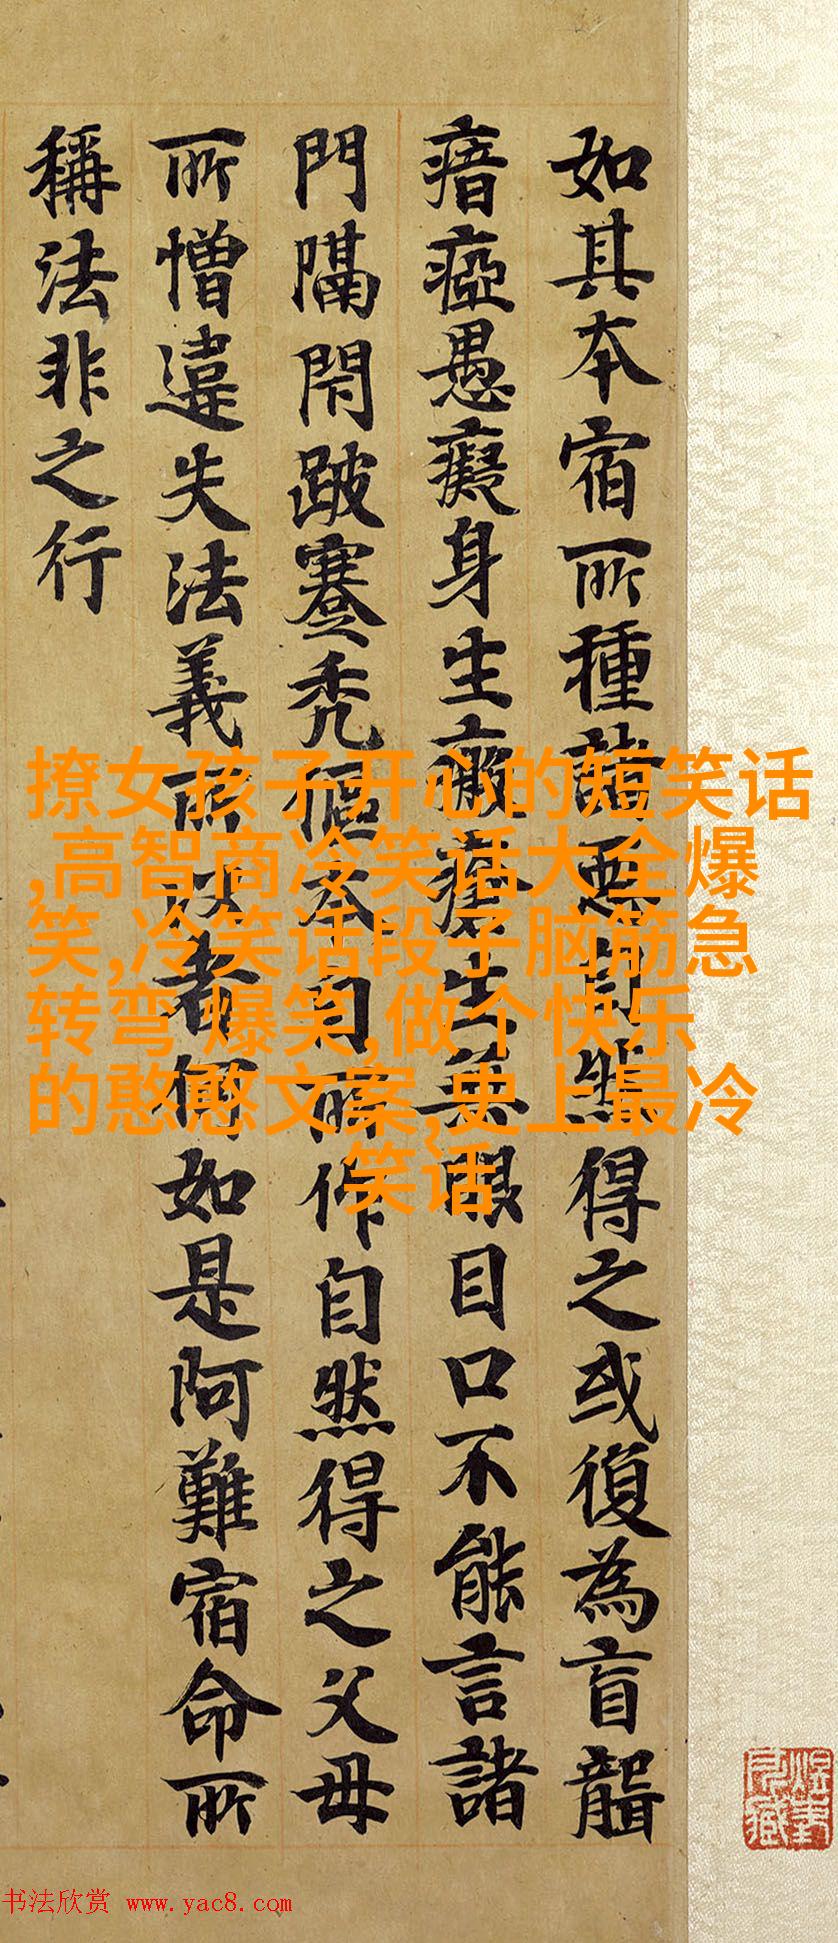 如其本宿所種諸惡自然得之或復為盲聾
瘖瘂愚癡身生無眼目口不能言諸
門隔閇跛蹇禿傴本自所作自然得之父母
所憎違失法義所以者何如是阿難宿命所
稱法非之行
撩女孩子开心的短笑话
,高智商冷笑话大全爆
笑,冷笑话段子脑筋急
转弯 爆笑,做个快乐
的憨憨文案,史上最冷
笑话
书法欣赏 www.yac8.com